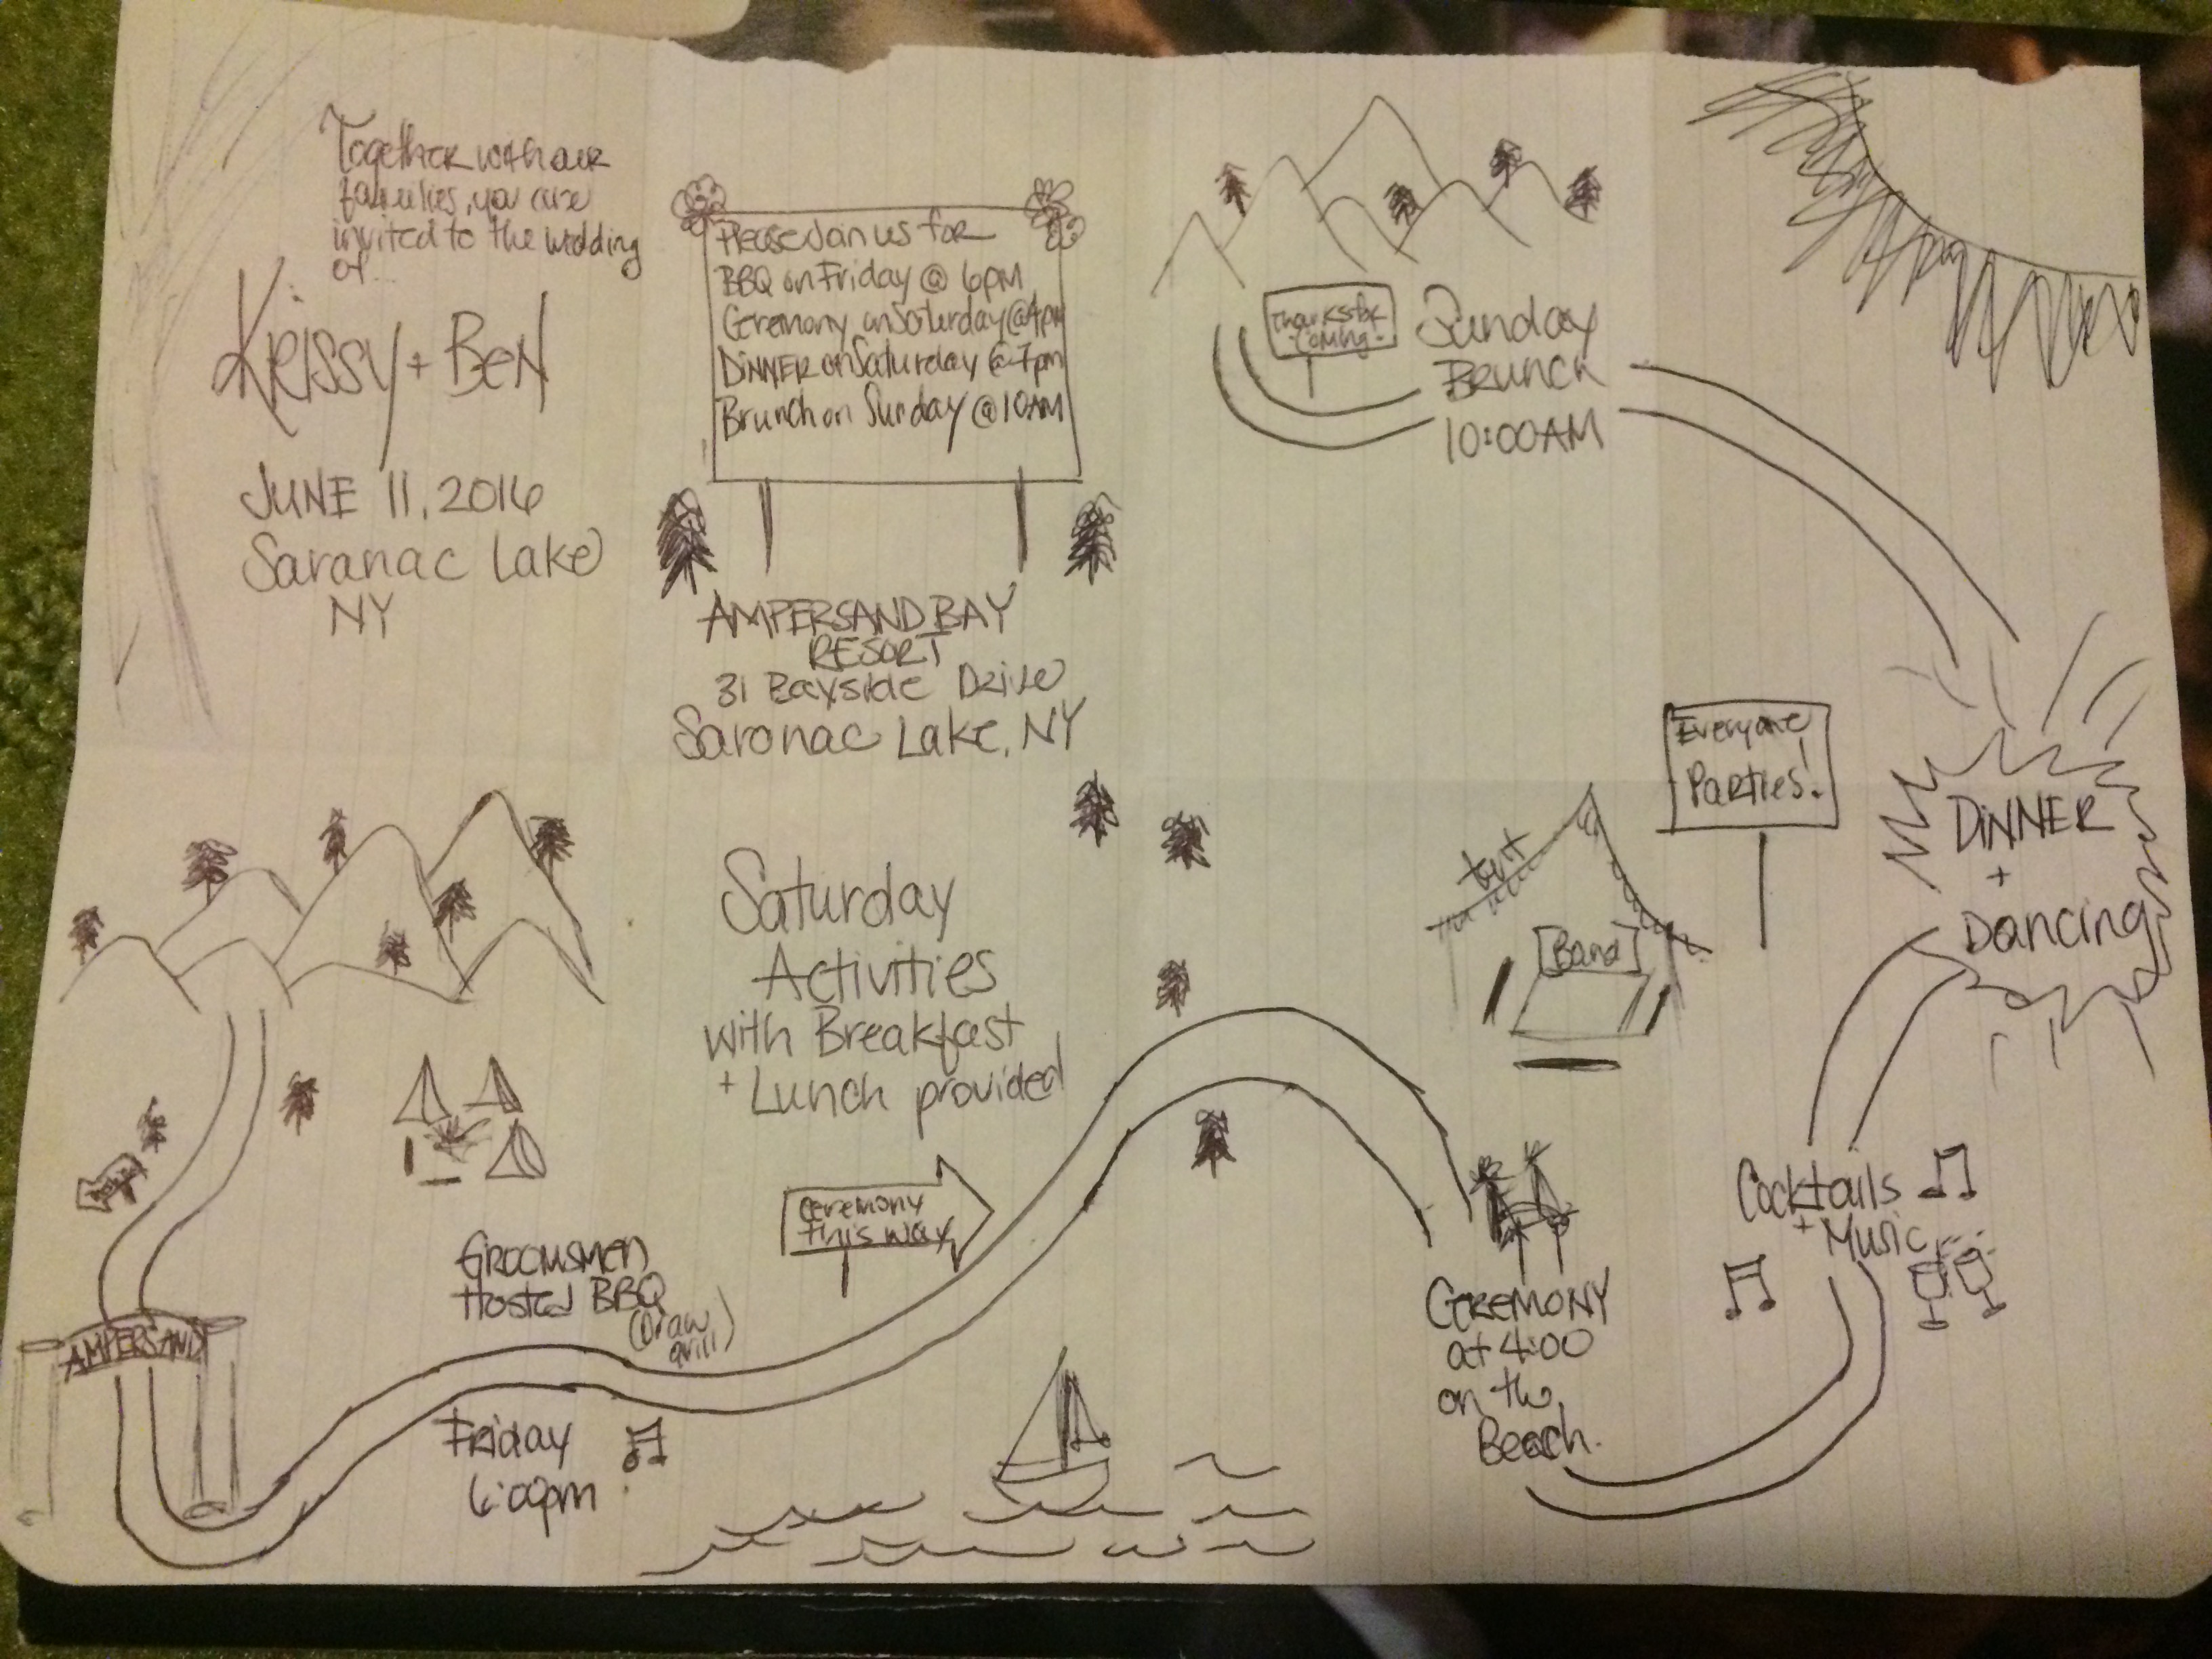 Together with our
families, you are
invited to the wedding
of...
Krissy + Ben
JUNE 11, 2016
Saranac Lake
NY
Please Join us for
BBQ on Friday @ 6pm
Ceremony on Saturday @ 4pm
DiNNER on Saturday @ 7pm
Brunch on Sunday @ 10AM
AMPERSAND BAY
RESORT
31 Bayside Drive
Saranac Lake, NY
Thanks for
Coming.
Sunday
Brunch
10:00AM
Everyone
Parties!
DiNNER
+
Dancing
tent
[Band]
Saturday
Activities
with Breakfast
+ Lunch provided
Ceremony
this way
GROOMSMEN
Hosted BBQ
(Draw
grill)
AMPERSAND
Friday
6:00pm
CEREMONY
at 4:00
on the
Beach.
Cocktails
+
Music